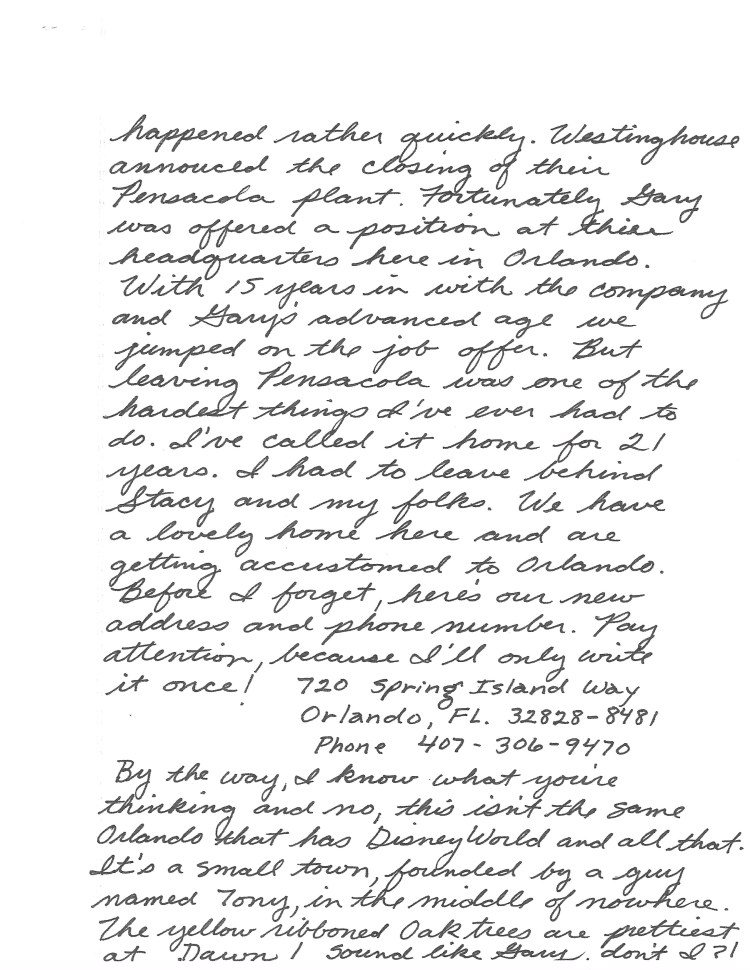 happened rather quickly. Westinghouse
annouced the closing of their
Pensacola plant. Fortunately Gary
was offered a position at thier
headquarters here in Orlando.
With 15 years in with the company
and Gary's advanced age we
jumped on the job offer. But
leaving Pensacola was one of the
hardest things I've ever had to
do. I've called it home for 21
years. I had to leave behind
Stacy and my folks. We have
a lovely home here and are
getting accustomed to Orlando.
Before I forget, here's our new
address and phone number. Pay
attention, because I'll only write
it once! 720 Spring Island Way
Orlando, FL. 32828-8481
Phone 407-306-9470
By the way, I know what you're
thinking and no, this isn't the same
Orlando that has DisneyWorld and all that.
It's a small town, founded by a guy
named Tony, in the middle of nowhere.
The yellow ribboned Oak trees are prettiest
at Dawn! Sound like Gary, don't I?!